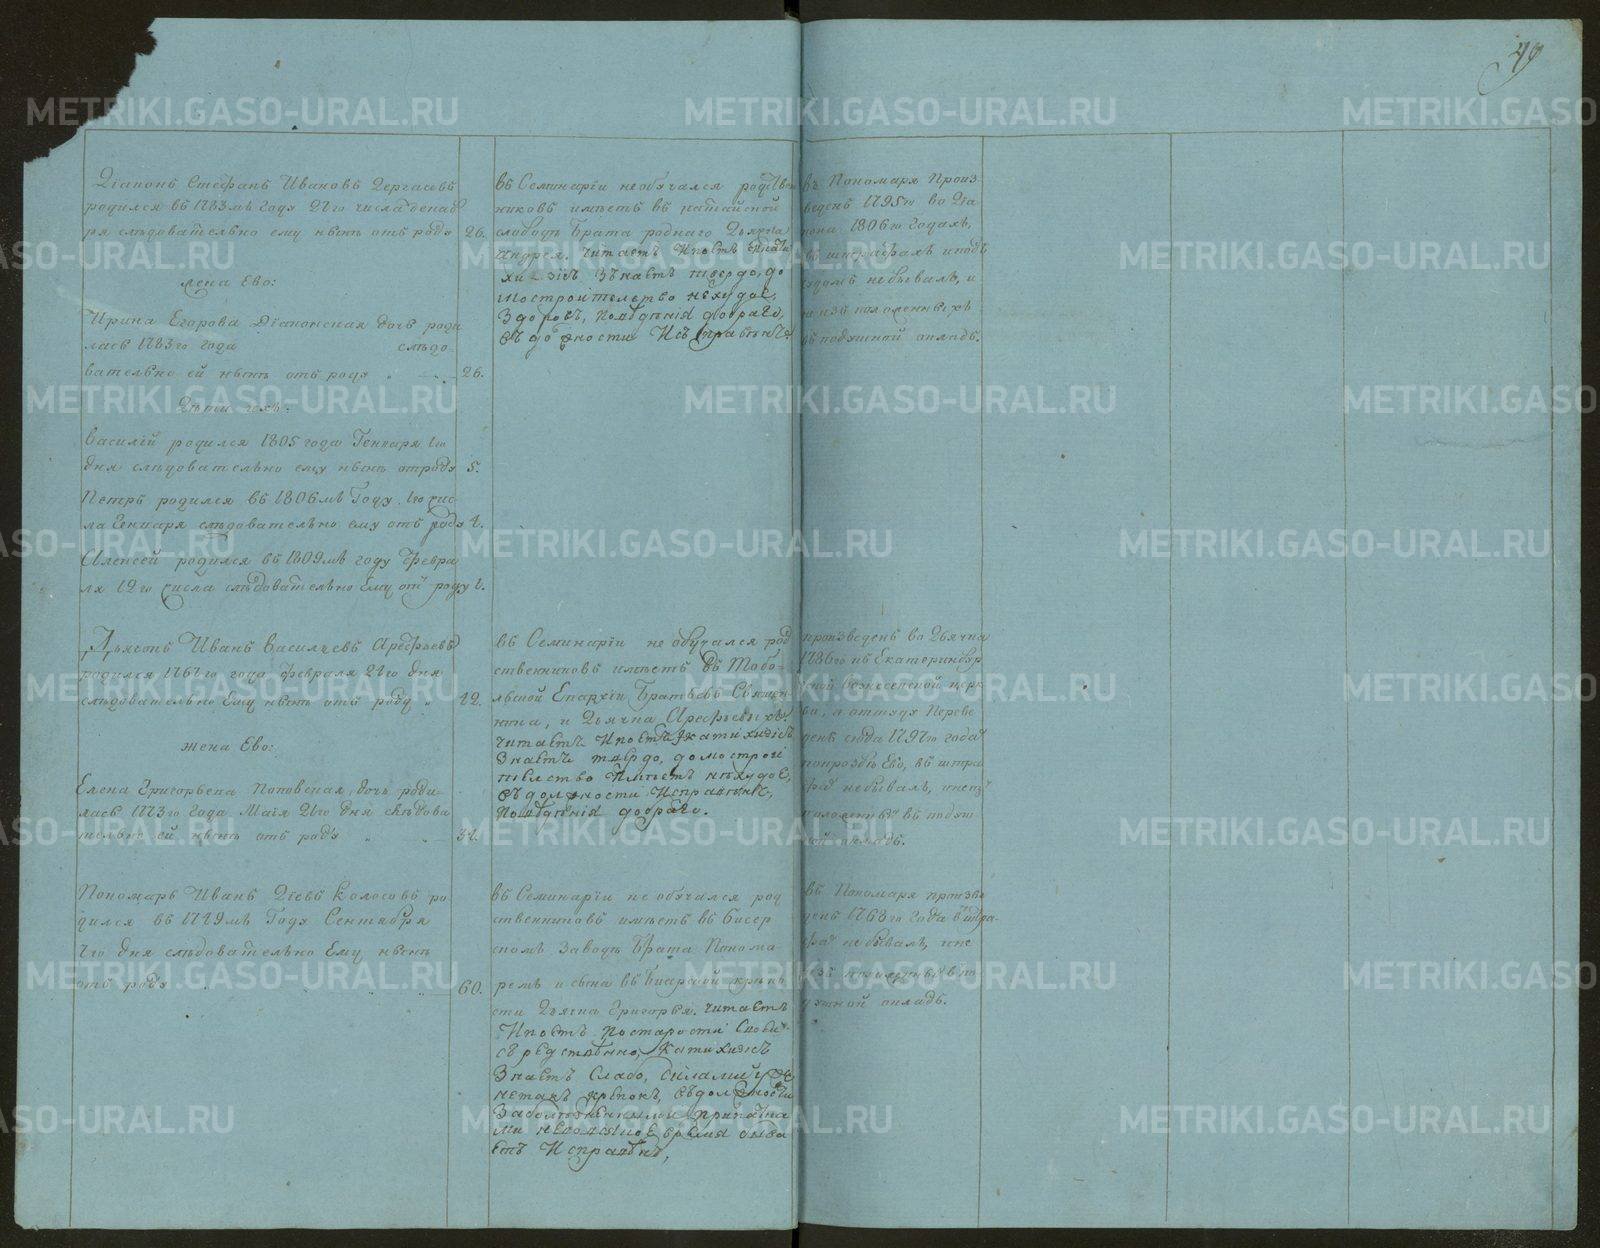 49
Діаконъ Стефанъ Ивановъ Дергачевъ
родился въ 1783мъ году 27го числа декаб
ря слѣдовательно ему нынѣ отъ роду 26.
жена Ево:
Ирина Егорова Діаконская дочь роди
лась 1783го года слѣдо
вательно ей нынѣ отъ роду 26.
Дѣти ихъ:
Василій родился 1805 года Генваря 1го
дня слѣдовательно ему нынѣ отъ роду 5.
Петръ родился въ 1806мъ Году 1го чис
ла Генваря слѣдовательно ему отъ роду 4.
Алексей родился въ 1809мъ году Февра
ля 12го числа слѣдовательно Ему отъ роду 1.
Дьячекъ Иванъ Васильевъ Арефьевъ
родился 1767го года февраля 27го дня
слѣдовательно Ему нынѣ отъ роду 42.
жена Ево:
Елена Григорьева Поповская дочь роди
лась 1773го года Маія 21го дня слѣдова
тельно ей нынѣ отъ роду
Пономарь Иванъ Колосовъ ро
дился въ 1749мъ Году Сентября
7го дня слѣдовательно Ему нынѣ
отъ роду 60.
въ Семинаріи не обучался родствен
никовъ имѣетъ въ катайской
слободѣ брата роднаго Дьячка
Андрея. читаетъ И поетъ
знаетъ твердо, до
мостроительство нехудое,
здоровъ, поведенія добраго,
въ должности Исправенъ
въ Семинаріи не обучался род
ственниковъ имѣетъ въ Тобо
льской Епархіи братьевъ Священ
ника, и Дьячка Арефьевыхъ.
читаетъ И поетъ, катихизисъ
знаетъ твердо, домострои
тельство Имѣетъ нехудое,
въ должности Исправенъ,
поведенія добраго.
въ Семинаріи не обучался род
ственниковъ имѣетъ въ бисер
скомъ заводѣ брата Понома
ремъ и сына въ крѣпо
сти Дьячка Григорья. читаетъ
И поетъ по старости
средственно, катихизисъ
знаетъ Слабо, силами уже
не такъ крѣпокъ, въ должности
за болѣзненными припадка
ми не во всякое время быва
етъ Исправенъ,
въ Пономаря Произ
веденъ 1795го во Діа
кона 1806го Годахъ,
въ штрафахъ и подъ
судомъ небывалъ, и
не изъ положенныхъ
въ подушной окладъ.
произведенъ во Дьячка
1786го къ Екатеринбур
ской Вознесенской церк
ви, а оттуда Переве
денъ сюда 1797го года
попрозбѣ Ево, въ штра
фѣ небывалъ, и неизъ
положенныхъ въ подуш
ной окладъ.
въ Пономаря произве
денъ 1768го Года въ штра
фѣ небывалъ, и не
изъ положенныхъ въ по
душной окладъ.
METRIKI.GASO-URAL.RU